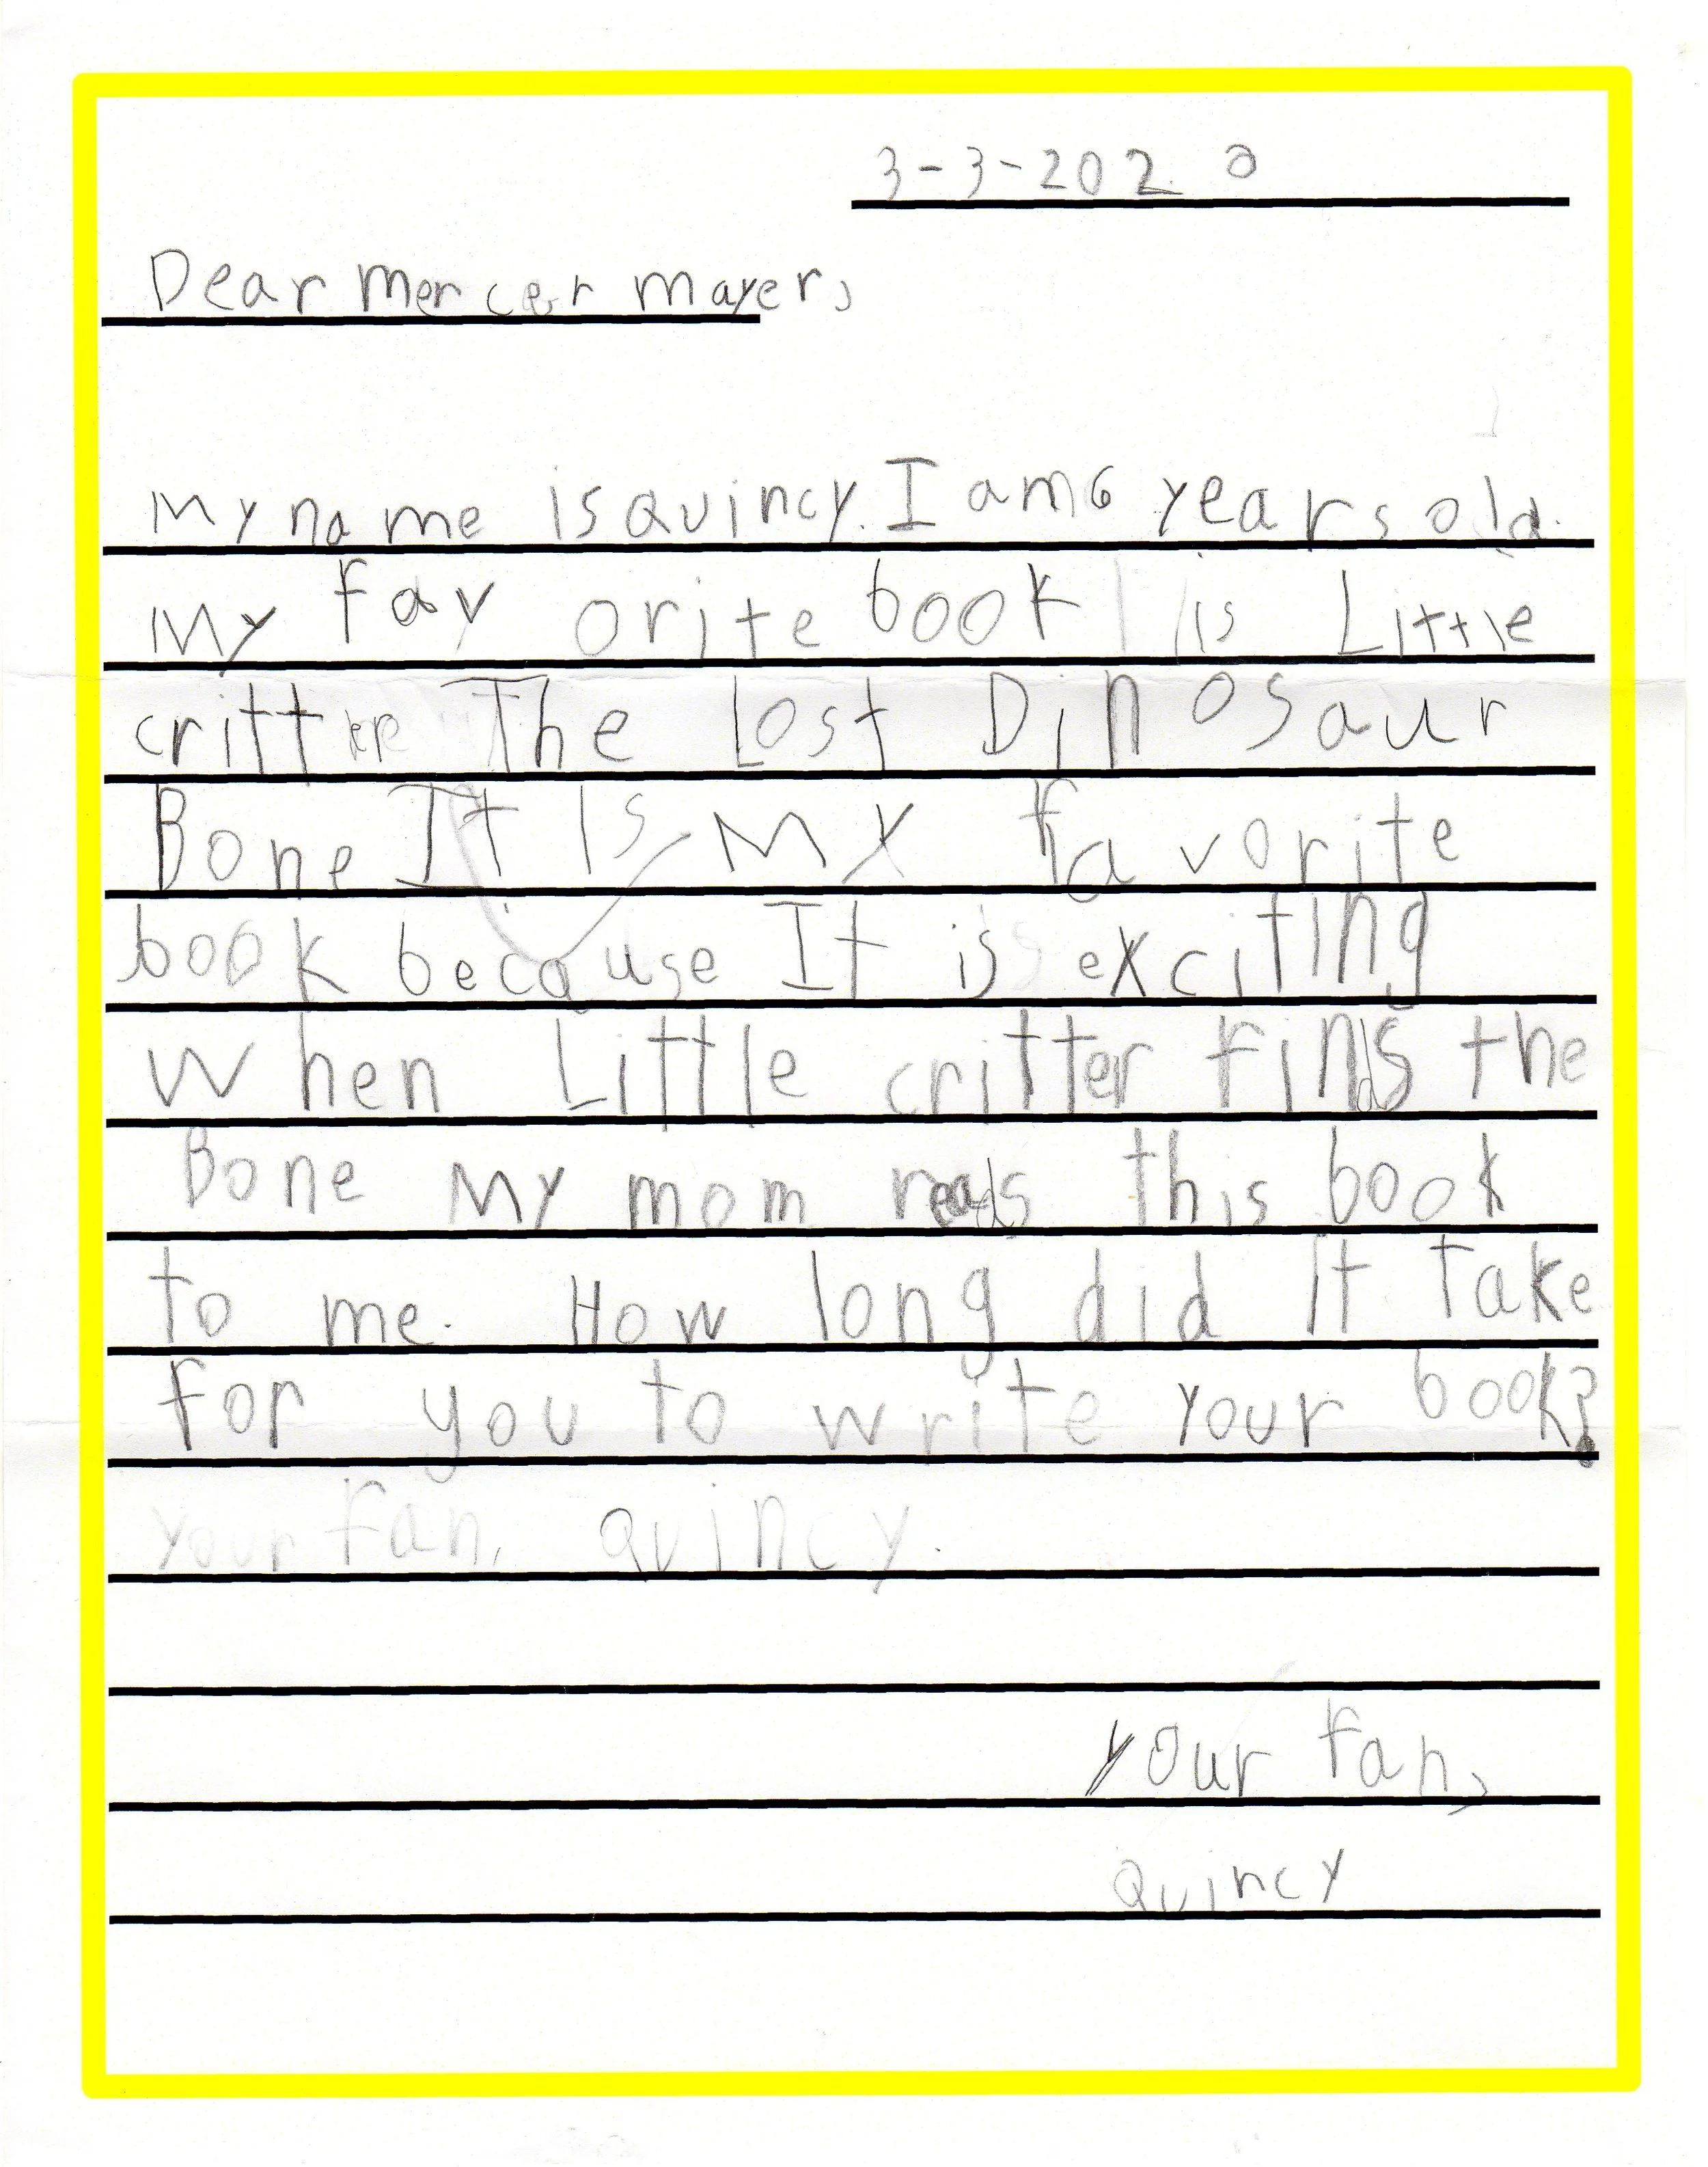 3-3-2020
Dear Mercer Mayer,
My name is Quincy. I am 6 years old.
My favorite book is Little
critter The Lost Dinosaur
Bone It Is My favorite
book because It is exciting
When Little critter finds the
Bone My mom reads this book
to me. How long did It take
for you to write your book?
your fan, Quincy.
your fan,
Quincy